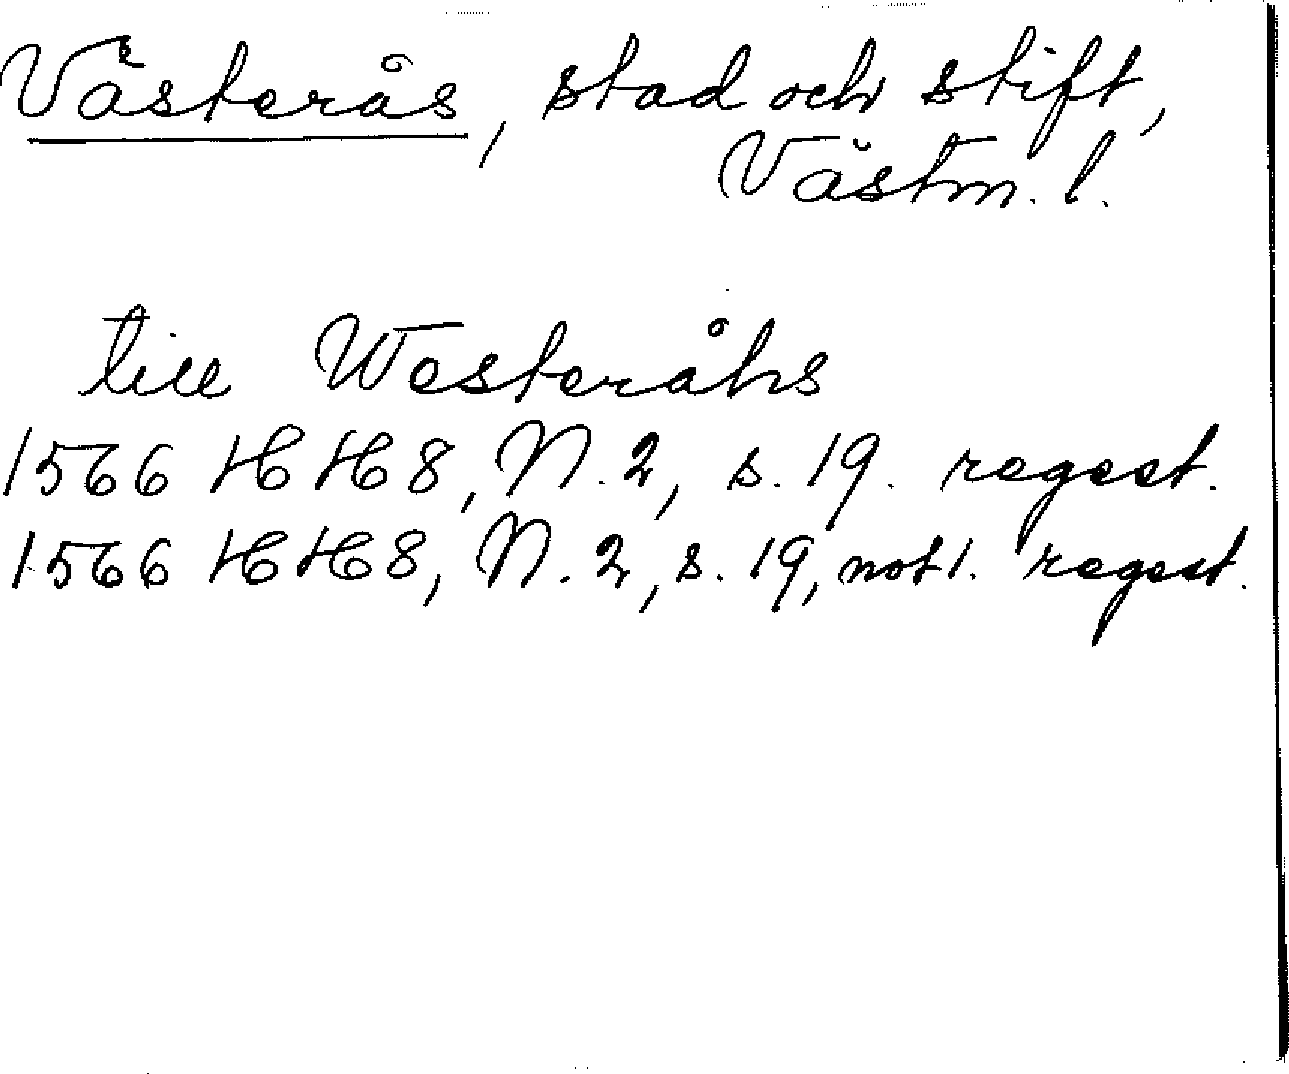 Västerås, stad och stift,
Västm. l.
till Westeråhs
1566 HH 8, N. 2, s. 19. regest.
1566 HH 8, N. 2, s. 19, not 1. regest.